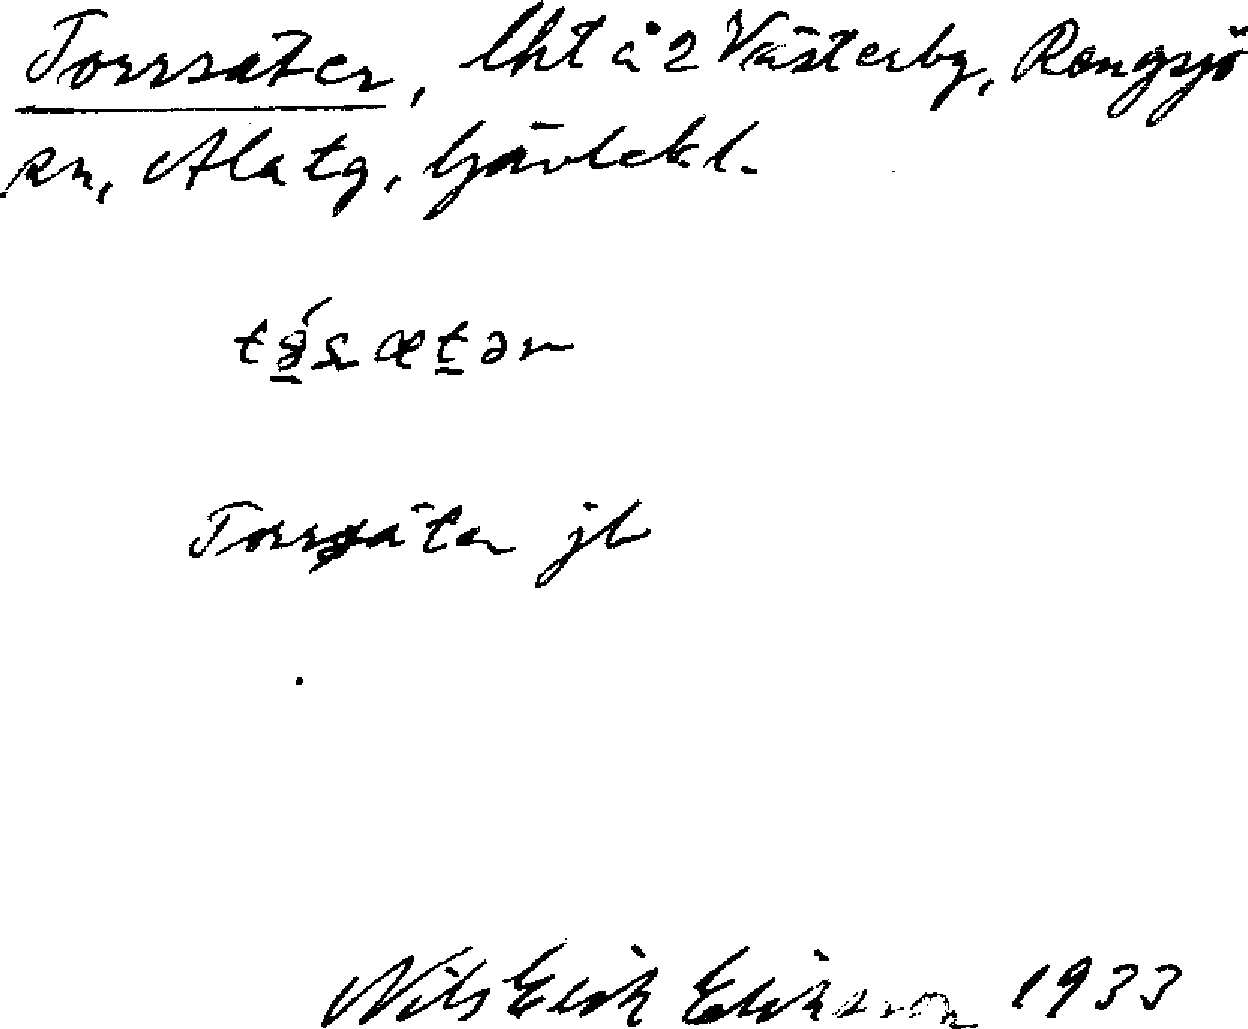 Torrsäter, lht å 2 Västerby, Rengsjö
sn, Ala tg, Gävlebl.
Torrsäter jb
Nils Erik Eriksson 1933